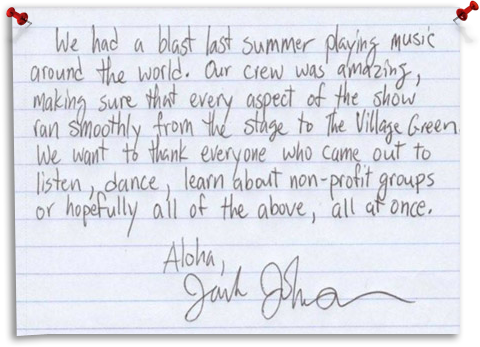 We had a blast last summer playing music
around the world. Our crew was amazing,
making sure that every aspect of the show
ran smoothly from the stage to the Village Green.
We want to thank everyone who came out to
listen, dance, learn about non-profit groups
or hopefully all of the above, all at once.
Aloha,
Jack Johnson